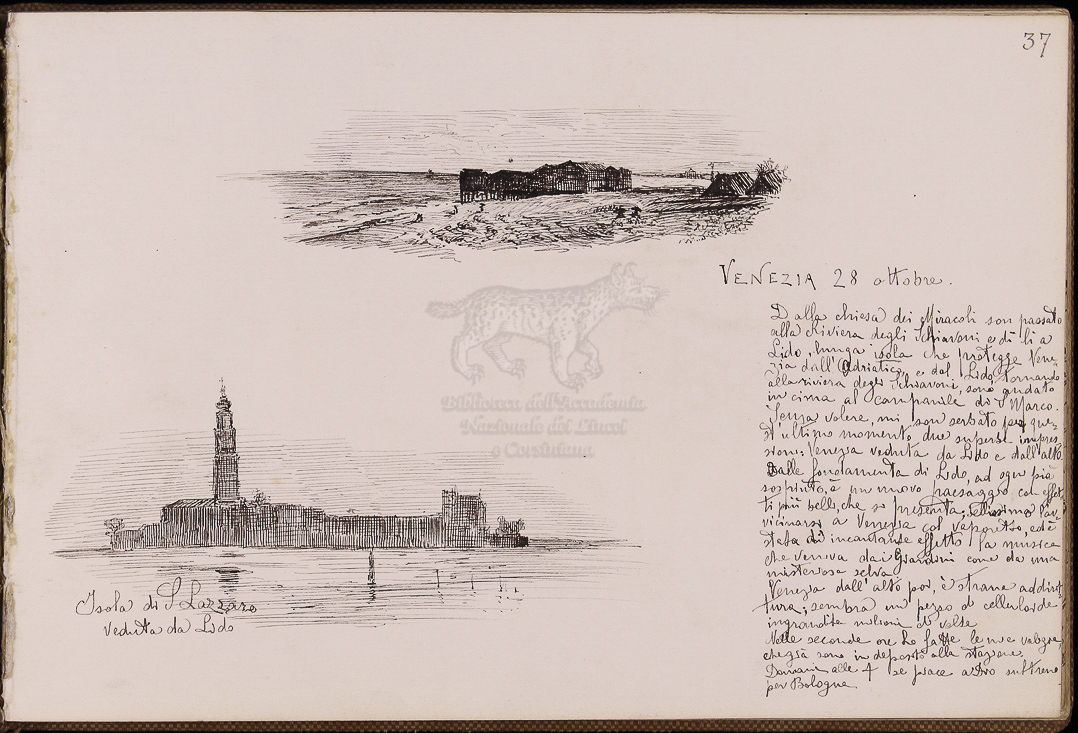 37
VENEZIA 28 ottobre.
Dalla chiesa dei Miracoli son passato
alla Riviera degli Schiavoni e di lì a
Lido, lunga isola che protegge Vene-
zia dall'Adriatico, e dal Lido, tornando
alla riviera degli Schiavoni, sono andato
in cima al campanile di S Marco.
Senza volere, mi son serbato per que-
st'ultimo momento due superbe impres-
sioni: Venezia veduta da Lido e dall'alto.
Dalle fondamenta di Lido, ad ogni piè
sospinto, è un nuovo paesaggio con effet-
ti più belli, che si presenta; bellissimo l'av-
vicinarsi a Venezia col vaporetto, ed è
stata di incantante effetto la musica
che veniva dai Giardini come da una
misteriosa selva.
Venezia dall'alto poi, è strana addirit-
tura; sembra un pezzo di celluloide
ingrandita milioni di volte
Nelle seconde ore ho fatte le mie valigie,
che già sono in deposito alla stazione.
Domani alle 4 se piace a Dio sul treno
per Bologna
Isola di S Lazzaro
veduta da Lido
Biblioteca dell'Accademia
Nazionale dei Lincei
e Corsiniana